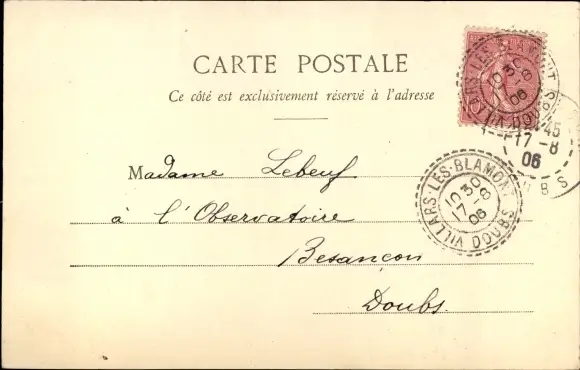 CARTE POSTALE
Ce côté est exclusivement réservé à l'adresse
Madame Lebeuf
à l'Observatoire
Besançon
Doubs
VILLARS-LES-BLAMONT
DOUBS
10 30
17-8
06
VILLARS-LES-BLAMONT
DOUBS
10 30
17-8
06
45
17-8
06
BS